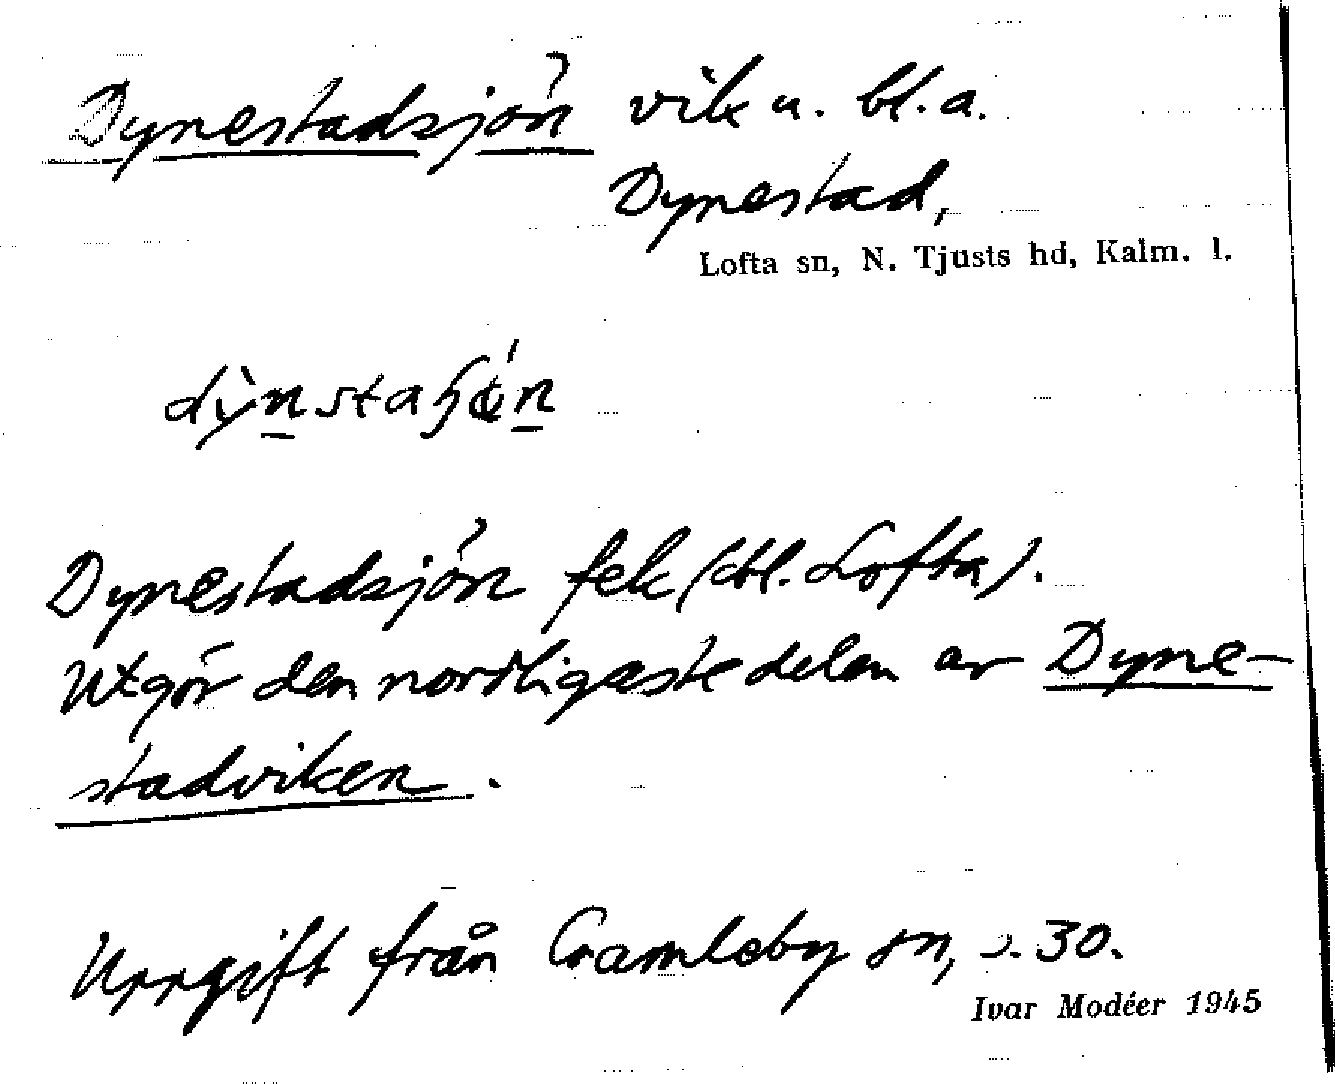 Dynestadsjön vik u. bl.a.
Dynestad,
Lofta sn, N. Tjusts hd, Kalm. l.
Dynestadsjön fek (bl. Lofta).
Utgör den nordligaste delen av Dyne-
stadviken.
Uppgift från Gamleby sn, s. 30.
Ivar Modéer 1945